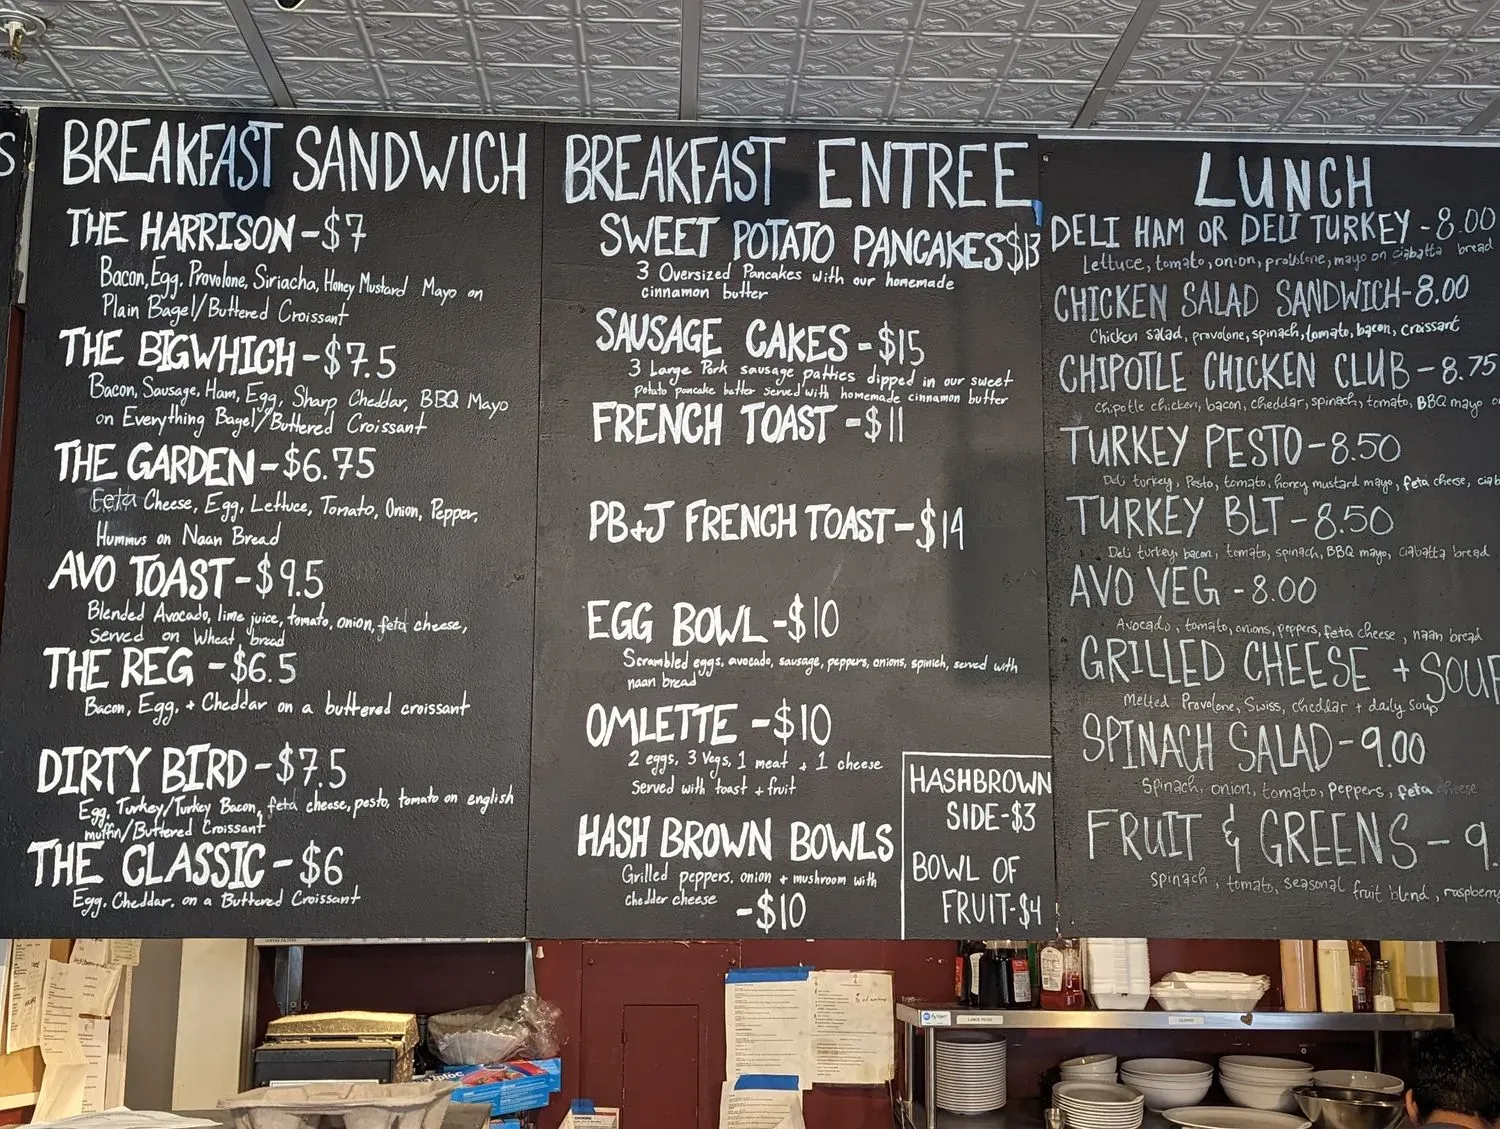 S
BREAKFAST SANDWICH
THE HARRISON - $7
Bacon, Egg, Provolone, Siriacha, Honey Mustard Mayo on
Plain Bagel/Buttered Croissant
THE BIGWHICH - $7.5
Bacon, Sausage, Ham, Egg, Sharp Cheddar, BBQ Mayo
on Everything Bagel/Buttered Croissant
THE GARDEN - $6.75
Feta Cheese, Egg, Lettuce, Tomato, Onion, Pepper,
Hummus on Naan Bread
AVO TOAST - $9.5
Blended Avocado, lime juice, tomato, onion, feta cheese,
Served on Wheat bread
THE REG - $6.5
Bacon, Egg, + Cheddar on a buttered croissant
DIRTY BIRD - $7.5
Egg, Turkey/Turkey Bacon, feta cheese, pesto, tomato on english
muffin/Buttered Croissant
THE CLASSIC - $6
Egg, Cheddar, on a Buttered Croissant
BREAKFAST ENTREE
SWEET POTATO PANCAKES $13
3 Oversized Pancakes with our homemade
cinnamon butter
SAUSAGE CAKES - $15
3 Large Pork sausage patties dipped in our sweet
potato pancake batter served with homemade cinnamon butter
FRENCH TOAST - $11
PB+J FRENCH TOAST - $14
EGG BOWL - $10
Scrambled eggs, avocado, sausage, peppers, onions, spinich, served with
naan bread
OMLETTE - $10
2 eggs, 3 Vegs, 1 meat + 1 cheese
Served with toast + fruit
HASH BROWN BOWLS
Grilled peppers, onion + mushroom with
chedder cheese
- $10
HASHBROWN
SIDE - $3
BOWL OF
FRUIT - $4
LUNCH
DELI HAM OR DELI TURKEY - 8.00
Lettuce, tomato, onion, provolone, mayo on ciabatta bread
CHICKEN SALAD SANDWICH - 8.00
Chicken salad, provolone, spinach, tomato, bacon, croissant
CHIPOTLE CHICKEN CLUB - 8.75
chipotle chicken, bacon, cheddar, spinach, tomato, BBQ mayo
TURKEY PESTO - 8.50
Deli turkey, Pesto, tomato, honey mustard mayo, feta cheese, ciab
TURKEY BLT - 8.50
Deli turkey, bacon, tomato, spinach, BBQ mayo, ciabatta bread
AVO VEG - 8.00
Avocado, tomato, onions, peppers, feta cheese, naan bread
GRILLED CHEESE + SOUP
Melted Provolone, Swiss, cheddar + daily soup
SPINACH SALAD - 9.00
Spinach, onion, tomato, peppers, feta cheese
FRUIT & GREENS - 9.
spinach, tomato, seasonal fruit blend, raspberry
LARGE TO GO